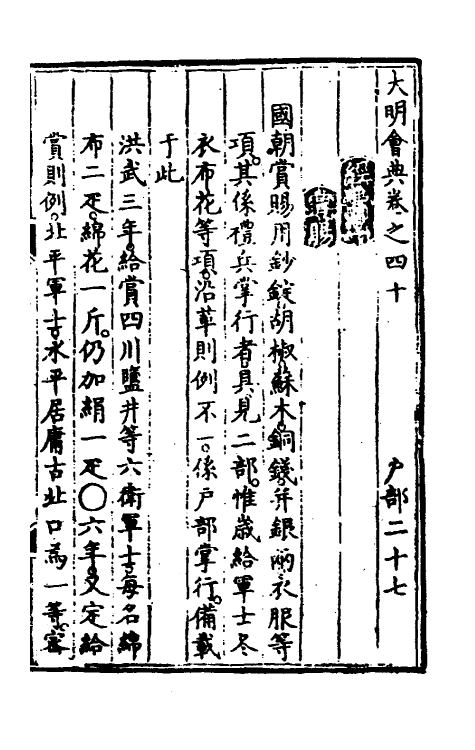 大明會典卷之四十 戶部二十七
經費
賞賜
國朝賞賜用鈔錠胡椒蘇木銅錢并銀兩衣服等
項其係禮兵掌行者具見二部惟歲給軍士冬
衣布花等項沿革則例不一係戶部掌行備載
于此
洪武三年給賞四川鹽井等六衛軍士每名綿
布二疋綿花一斤仍加絹一疋〇六年又定給
賞則例北平軍士永平居庸古北口為一等密